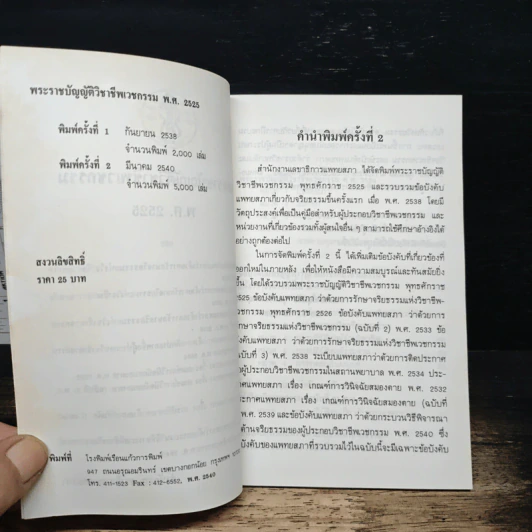 พระราชบัญญัติวิชาชีพเวชกรรม พ.ศ. 2525
พิมพ์ครั้งที่ 1 กันยายน 2538
จำนวนพิมพ์ 2,000 เล่ม
พิมพ์ครั้งที่ 2 มีนาคม 2540
จำนวนพิมพ์ 5,000 เล่ม
สงวนลิขสิทธิ์
ราคา 25 บาท
พิมพ์ที่ โรงพิมพ์เรือนแก้วการพิมพ์
947 ถนนอรุณอมรินทร์ เขตบางกอกน้อย กรุงเทพฯ
โทร. 411-1523 Fax : 412-6552, พ.ศ. 2540
คำนำพิมพ์ครั้งที่ 2
สำนักงานเลขาธิการแพทยสภา ได้จัดพิมพ์พระราชบัญญัติ
วิชาชีพเวชกรรม พุทธศักราช 2525 และรวบรวมข้อบังคับ
แพทยสภาเกี่ยวกับจริยธรรมขึ้นครั้งแรก เมื่อ พ.ศ. 2538 โดยมี
วัตถุประสงค์เพื่อเป็นคู่มือสำหรับผู้ประกอบวิชาชีพเวชกรรม และ
หน่วยงานที่เกี่ยวข้องรวมทั้งผู้สนใจอื่น ๆ สามารถใช้ศึกษาอ้างอิงได้
อย่างถูกต้องต่อไป
ในการจัดพิมพ์ครั้งที่ 2 นี้ ได้เพิ่มเติมข้อบังคับที่เกี่ยวข้องที่
ออกใหม่ในภายหลัง เพื่อให้หนังสือมีความสมบูรณ์และทันสมัยยิ่ง
ขึ้น โดยได้รวบรวมพระราชบัญญัติวิชาชีพเวชกรรม พุทธศักราช
2525 ข้อบังคับแพทยสภา ว่าด้วยการรักษาจริยธรรมแห่งวิชาชีพ-
เวชกรรม พุทธศักราช 2526 ข้อบังคับแพทยสภา ว่าด้วยการ
รักษาจริยธรรมแห่งวิชาชีพเวชกรรม (ฉบับที่ 2) พ.ศ. 2533 ข้อ
บังคับแพทยสภา ว่าด้วยการรักษาจริยธรรมแห่งวิชาชีพเวชกรรม
(ฉบับที่ 3) พ.ศ. 2538 ระเบียบแพทยสภาว่าด้วยการติดประกาศ
ผู้ประกอบวิชาชีพเวชกรรมในสถานพยาบาล พ.ศ. 2534 ประ-
กาศแพทยสภา เรื่อง เกณฑ์การวินิจฉัยสมองตาย พ.ศ. 2532
ประกาศแพทยสภา เรื่อง เกณฑ์การวินิจฉัยสมองตาย (ฉบับที่
พ.ศ. 2539 และข้อบังคับแพทยสภา ว่าด้วยกระบวนวิธีพิจารณา
ด้านจริยธรรมของผู้ประกอบวิชาชีพเวชกรรม พ.ศ. 2540 ซึ่ง
บังคับของแพทยสภาที่รวบรวมไว้ในฉบับนี้จะมีเฉพาะข้อบังคับ